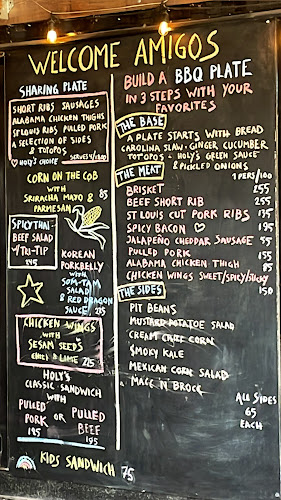 WELCOME AMIGOS
SHARING PLATE
SHORT RIBS SAUSAGES
ALABAMA CHICKEN THIGHS
ST LOUIS RIBS PULLED PORK
A SELECTION OF SIDES
& TOTOPOS
HOLY'S CHOICE
CORN ON THE COB
WITH
SRIRACHA MAYO & 85
PARMESAN
SPICY THAI-
BEEF SALAD
W/ TRI-TIP
195
KOREAN
PORKBELLY
WITH
SOM-TAM
SALAD
& RED DRAGON
SAUCE 215
CHICKEN WINGS
WITH
SESAM SEEDS
CHILI & LIME 225
HOLY'S
CLASSIC SANDWICH
WITH
PULLED PORK 195
OR
PULLED BEEF 195
KIDS SANDWICH 75
BUILD A BBQ PLATE
IN 3 STEPS WITH YOUR
FAVORITES
THE BASE
A PLATE STARTS WITH BREAD
CAROLINA SLAW · GINGER CUCUMBER
TOTOPOS · HOLY'S GREEN SAUCE
& PICKLED ONIONS
THE MEAT
1 PERS/100
BRISKET
BEEF SHORT RIB 255
ST LOUIS CUT PORK RIBS 135
SPICY BACON 195
JALAPEÑO CHEDDAR SAUSAGE 55
PULLED PORK 155
ALABAMA CHICKEN THIGH 85
CHICKEN WINGS SWEET/SPICY
150
THE SIDES
PIT BEANS
MUSTARD POTATOE SALAD
CREAM CHEE CORN
SMOKY KALE
MEXICAN CORN SALAD
MACC N BROCK
ALL SIDES
65
EACH